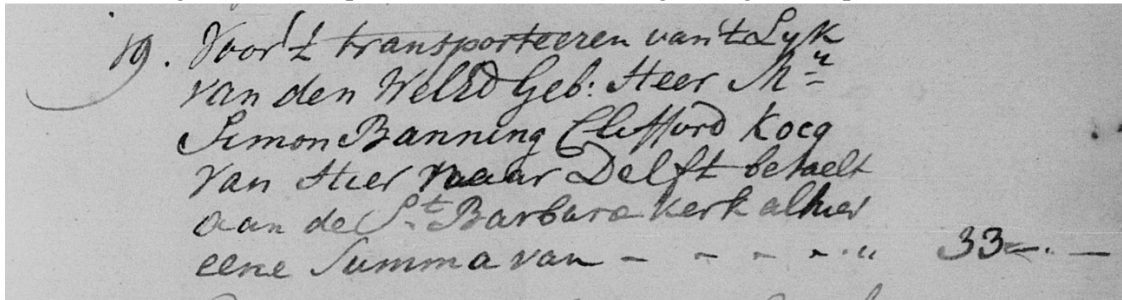 19. Voor't transporteeren van't Lyk
van den WelEd Geb: Heer Mr
Simon Banning Clifford Kocq
van Hier naar Delft betaelt
aan de St Barbara Kerk alhier
eene Summa van - - - - " 33 - . -